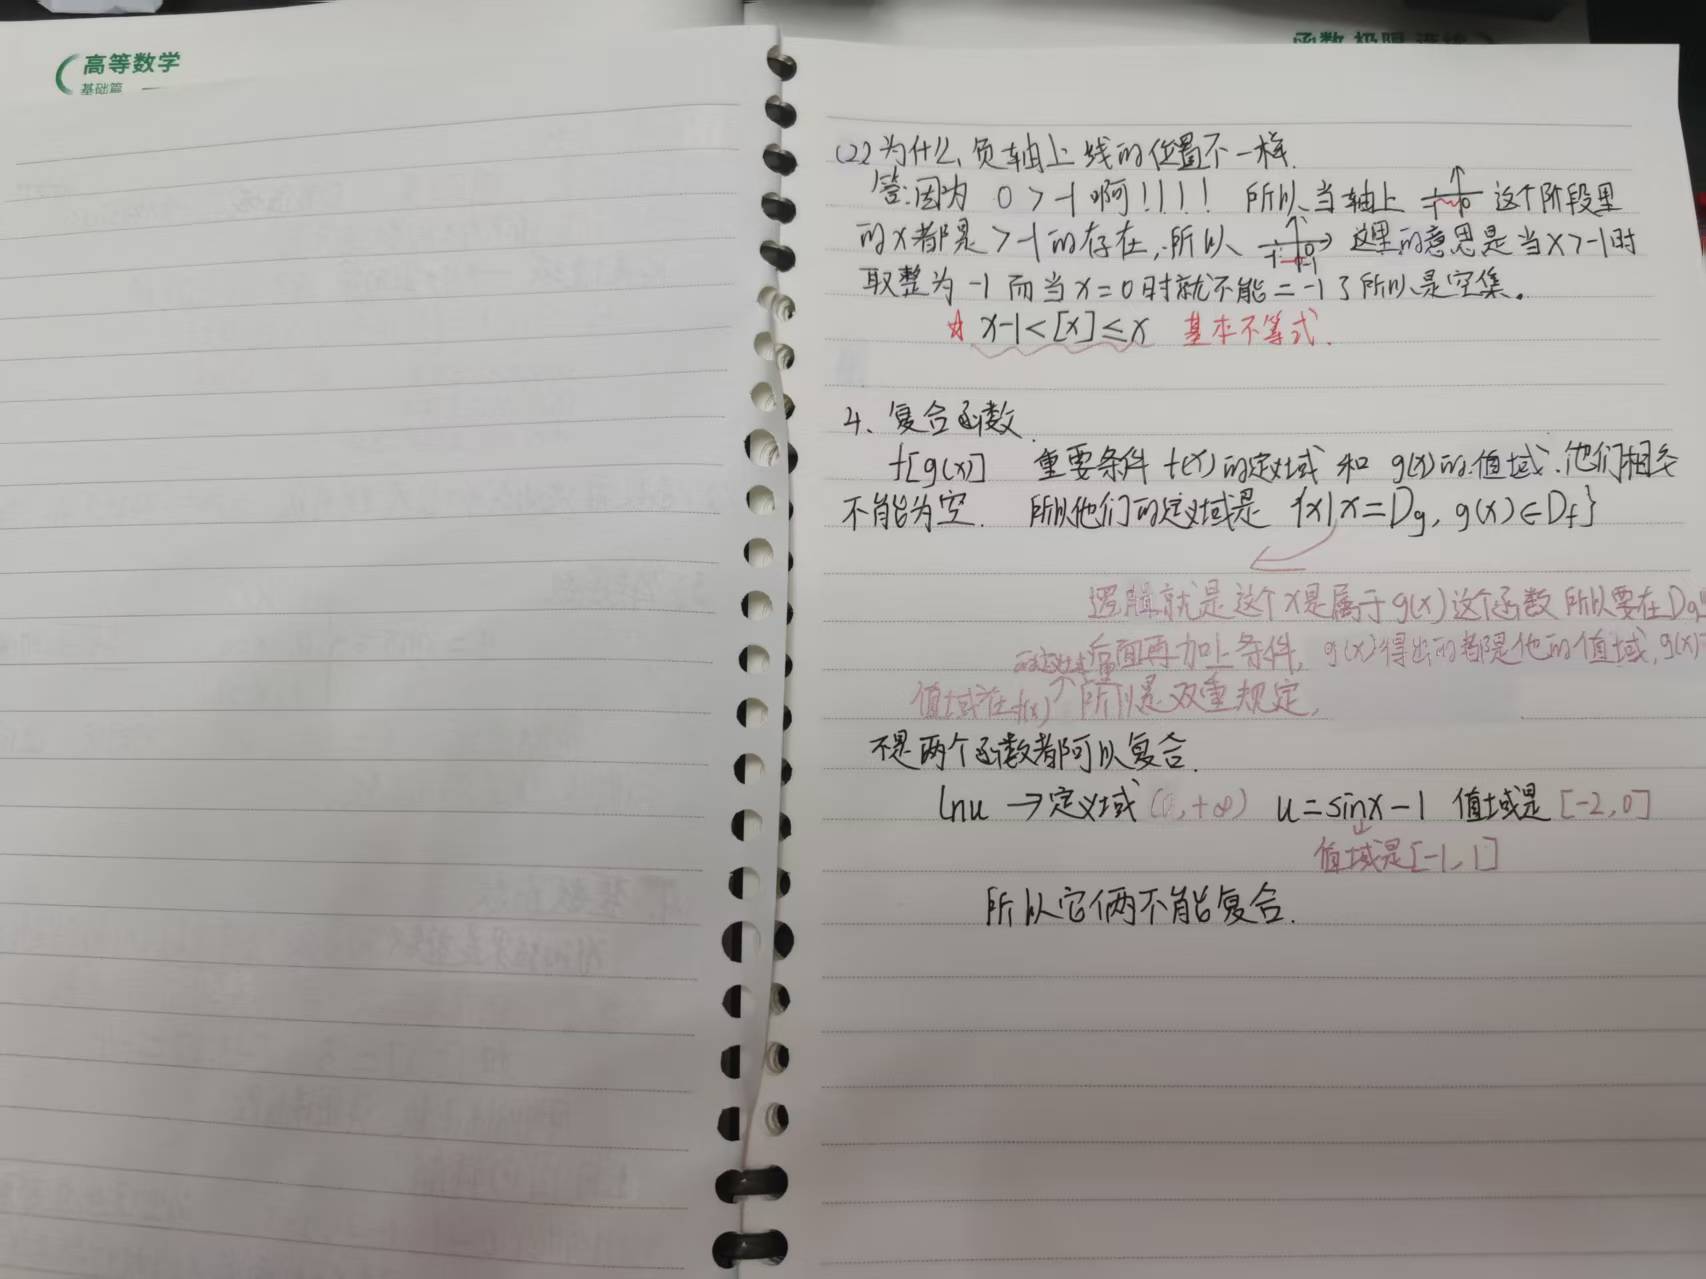 高等数学
基础篇
函数 极限 连续
(2) 为什么负轴上线的位置不一样.
答:因为 0 > -1 啊!!!! 所以当轴上 -1 0 这个阶段里
的x都是 > -1 的存在,所以 -1 0 -1 这里的意思是当x>-1时
取整为 -1 而当 x=0时就不能=-1了所以是空集。
☆ x-1<[x]≤x 基本不等式.
4、复合函数.
f[g(x)] 重要条件 f(x)的定义域 和 g(x)的值域.他们相交
不能为空. 所以他们的定义域是 {x|x=Dg, g(x)∈Df}
逻辑就是这个x是属于g(x)这个函数 所以要在Dg
后面再加上条件, g(x)得出的都是他的值域,g(x)
的定义域里
值域在f(x) 所以是双重规定,
不是两个函数都可以复合.
lnu →定义域 (0,+∞) u=sinx-1 值域是 [-2,0]
值域是[-1,1]
所以它俩不能复合.